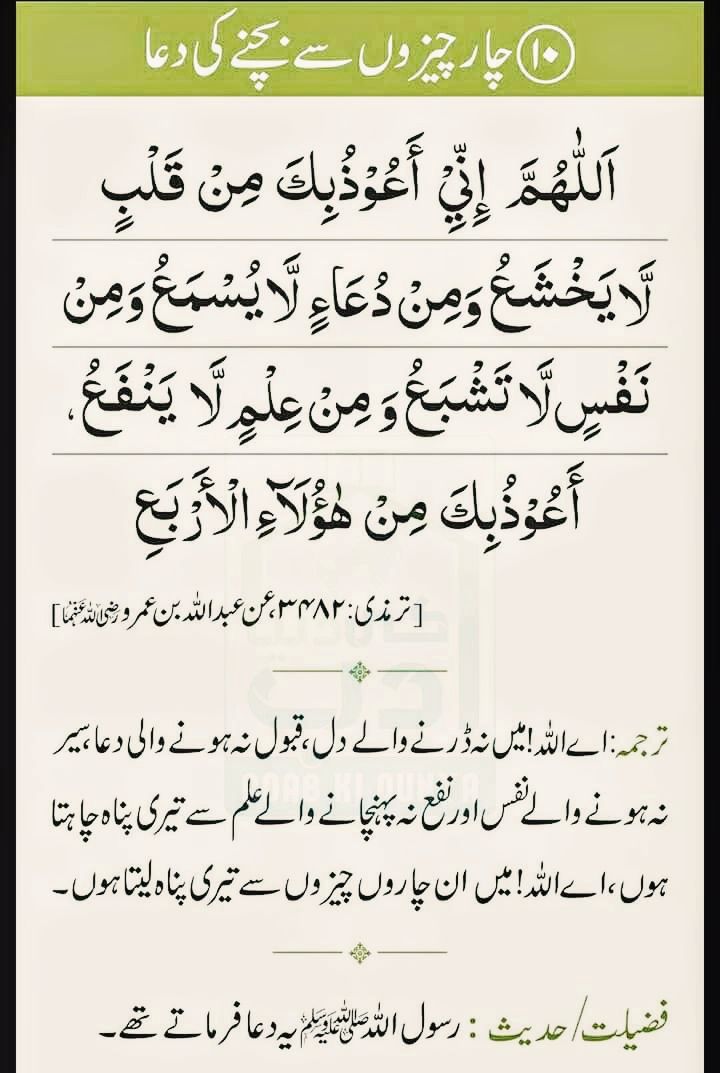 ۱۰ چار چیزوں سے بچنے کی دعا
اَللّٰهُمَّ إِنِّيْ أَعُوْذُبِكَ مِنْ قَلْبٍ
لَّا يَخْشَعُ وَمِنْ دُعَاءٍ لَّا يُسْمَعُ وَمِنْ
نَفْسٍ لَّا تَشْبَعُ وَمِنْ عِلْمٍ لَّا يَنْفَعُ،
أَعُوْذُبِكَ مِنْ هٰؤُلَآءِ الْأَرْبَعِ
[ترمذی: ۳۴۸۲، عن عبداللہ بن عمرو رضی اللہ عنہما]
ترجمہ: اے اللہ! میں نہ ڈرنے والے دل، قبول نہ ہونے والی دعا، سیر
نہ ہونے والے نفس اور نفع نہ پہنچانے والے علم سے تیری پناہ چاہتا
ہوں، اے اللہ! میں ان چاروں چیزوں سے تیری پناہ لیتا ہوں۔
فضیلت/حدیث: رسول اللہ ﷺ یہ دعا فرماتے تھے۔